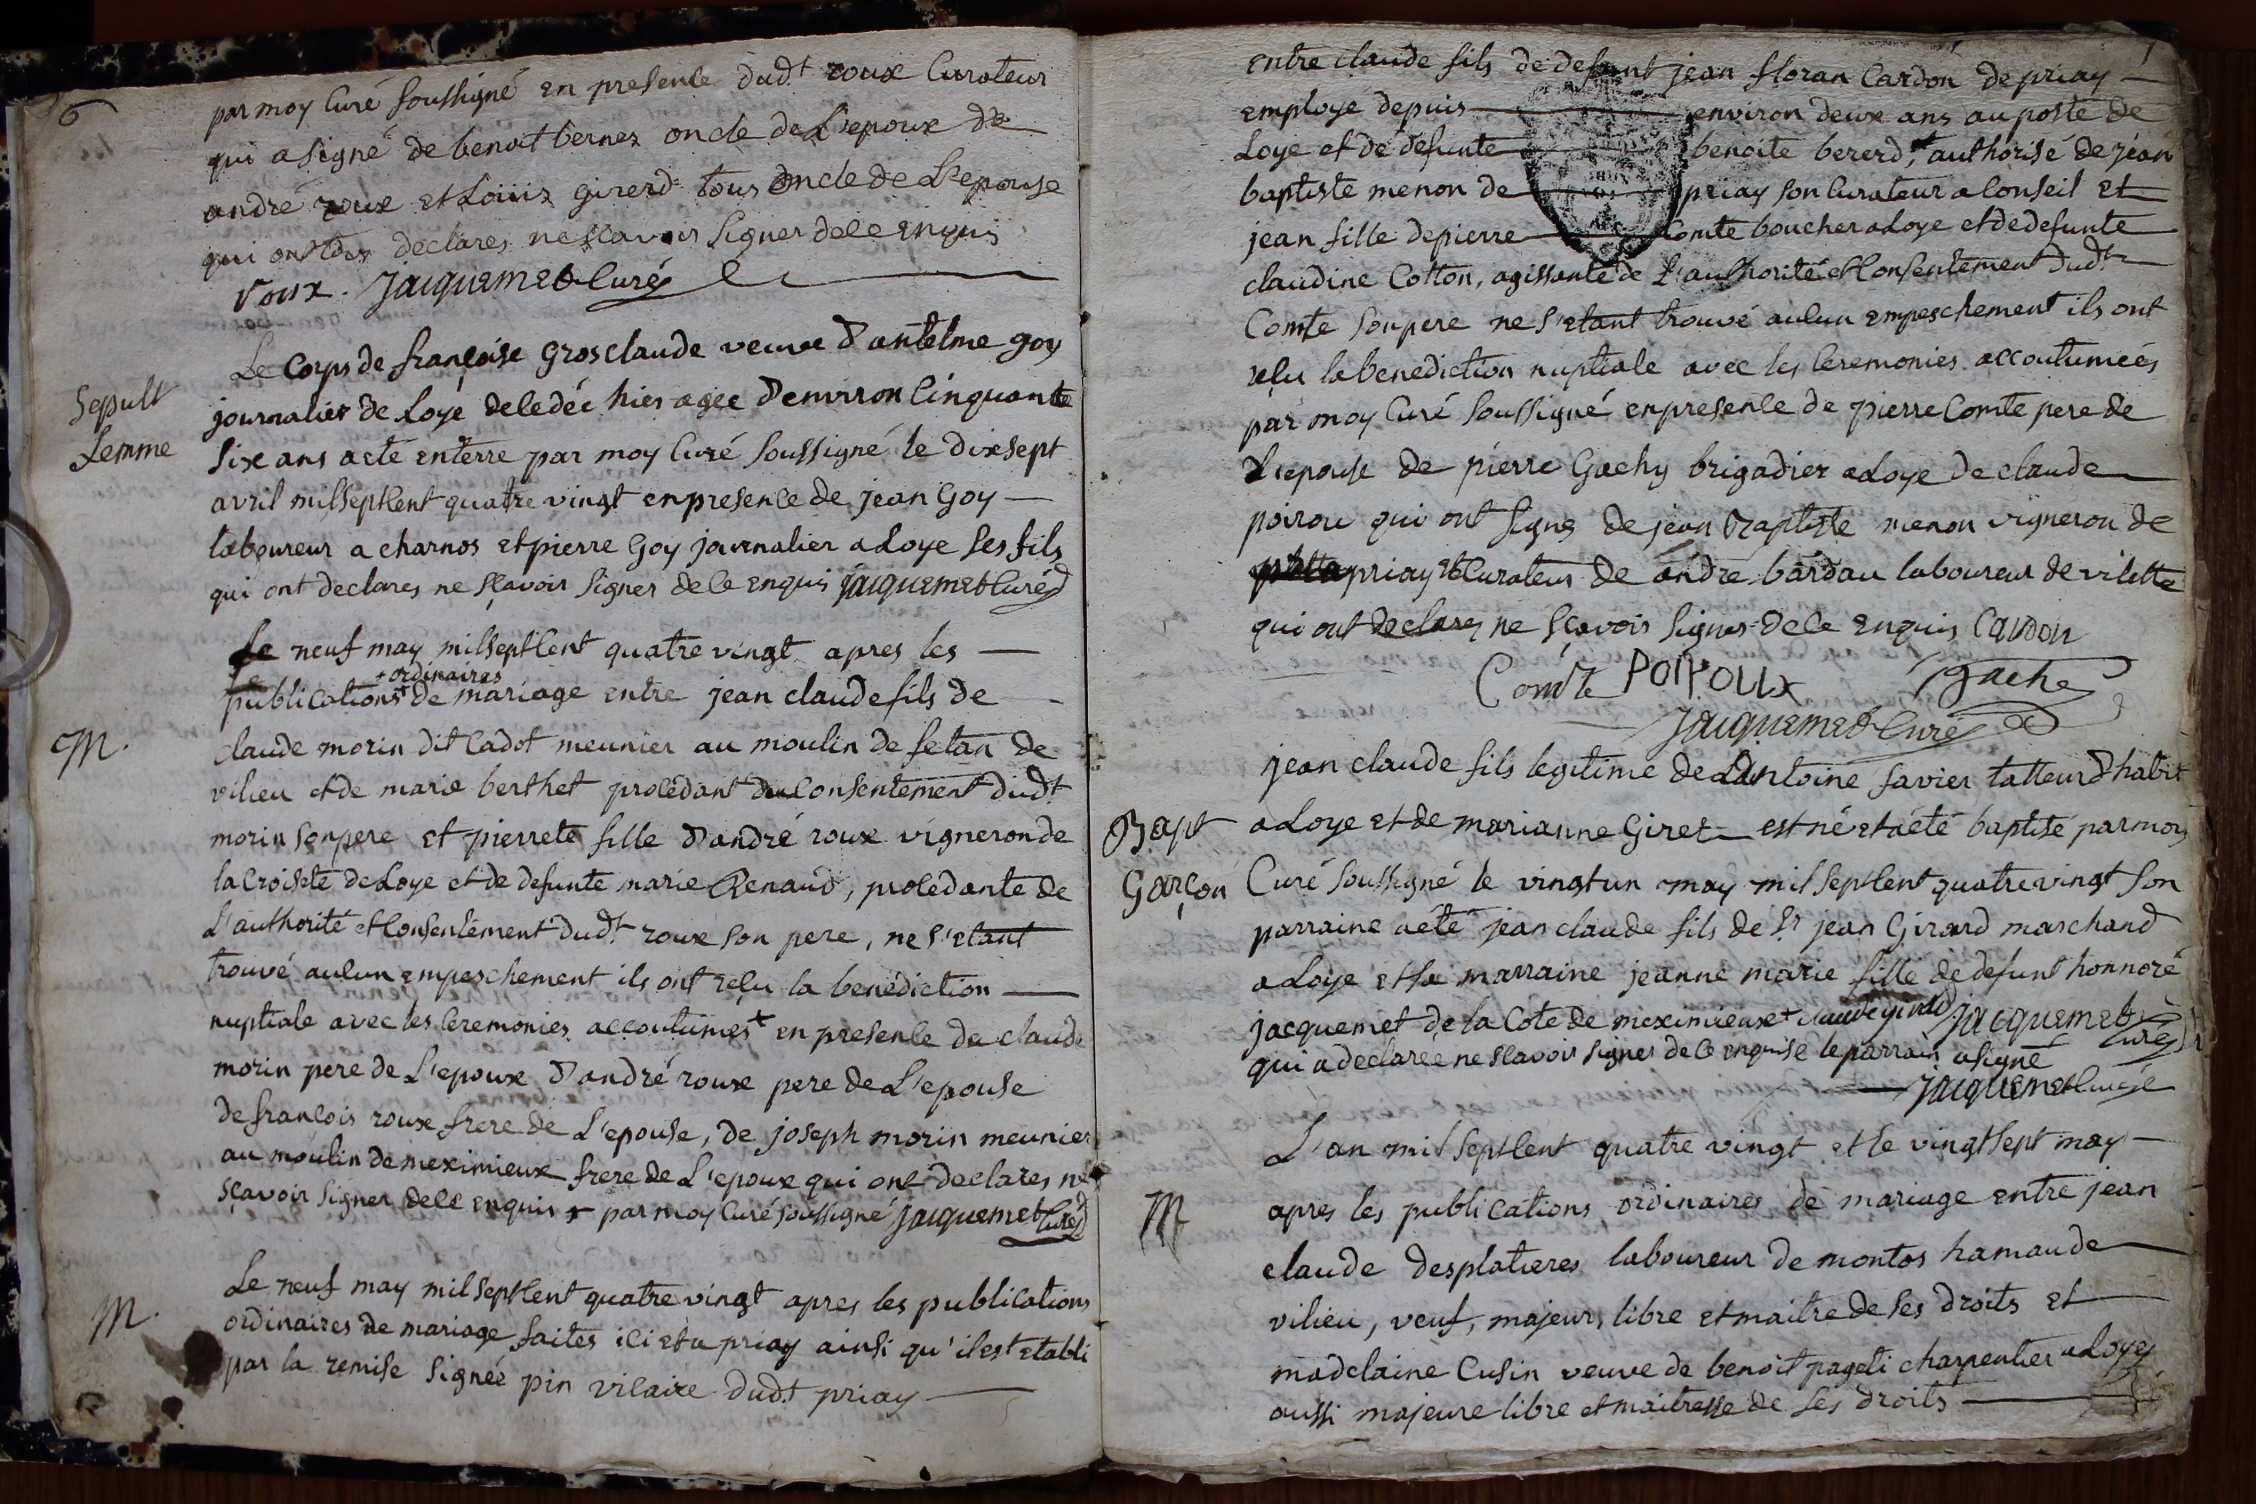 6
par moy Curé soussigné en presence dudt roux Curateur
qui a signé de benoit bernex oncle de L'epoux de
andré roux et Loüis Girerd tous oncle de L'epouse
qui ont tous declares ne sçavoir signer de ce enquis
roux. Jacquemet Curé
Sepult
femme
Le Corps de françoise Grosclaude veuve d'antelme goy
journalier de Loye decedée hier agée d'environ Cinquante
six ans a eté enterré par moy Curé soussigné le dixsept
avril milseptcent quatre vingt en presence de jean Goy
laboureur a charnos et pierre Goy journalier a Loye ses fils
qui ont declares ne sçavoir signer de ce enquis jacquemet Curé
M.
Le neuf may milseptcent quatre vingt apres les
+ ordinaires
publications + de mariage entre jean claude fils de
claude morin dit Cadot meunier au moulin de fetan de
vilieu et de marie berthet procedant du consentement dudt
morin son pere et pierrete fille d'andré roux vigneron de
la Croisete de Loye et de defunte marie Renaud, procedante de
L'authorité et Consentement dudt roux son pere, ne s'etant
trouvé aucun empeschement ils ont reçu la benediction
nuptiale avec les Ceremonies accoutumes + en presence de claude
morin pere de L'epoux d'andré roux pere de L'epouse
de françois roux frere de L'epouse, de joseph morin meunier
au moulin de meximieux frere de L'epoux qui ont declares ne
sçavoir signer de ce enquis + par moy Curé soussigné jacquemet Curé
M.
Le neuf may milseptcent quatre vingt apres les publications
ordinaires de mariage faites ici et a priay ainsi qu'il est etabli
par la remise signée pin vicaire dudt priay
entre claude fils de defunt jean floran Cardon de priay
employe depuis environ deux ans au poste de
Loye et de defunte benoite bererd, authorisé de jean
baptiste menon de priay son Curateur a Conseil et
jean fille de pierre Comte boucher a Loye et de defunte
claudine Cotton, agissante de L'authorité et Consentement dudt
Comte son pere ne s'etant trouvé aucun empeschement ils ont
reçu la benediction nuptiale avec les Ceremonies accoutumées
par moy Curé soussigné en presence de pierre Comte pere de
L'epouse de pierre Gachy brigadier a Loye de claude
poirou qui ont signes de jean Baptiste menon vigneron de
priay et Curateur de andre bardau laboureur de vilette
qui ont declares ne sçavoir signer de ce enquis Cardon
Comte POIROUX gache
Jacquemet Curé
Bapt
Garçon
jean claude fils legitime de d'Antoine favier tatteur d'habit
a Loye et de marianne Giret est né et a été baptisé par moy
Curé soussigné le vingt un may mil septcent quatre vingt son
parraine a été jean claude fils de Sr jean Girard marchand
a Loye et sa marraine jeanne marie fille de defunt honnoré
jacquemet de la Cote de meximieux + claude girard Jacquemet Curé
qui a declarée ne sçavoir signer de ce enquise le parrain a signé
jacquemet curé
M
L'an mil septcent quatre vingt et le vingt sept may
apres les publications ordinaires de mariage entre jean
claude desplatieres laboureur de montos hamaude
vilieu, veuf, majeur, libre et maitre de ses droits et
madelaine Cusin veuve de benoit pageti charpentier a Loye
aussi majeure libre et maitresse de ses droits